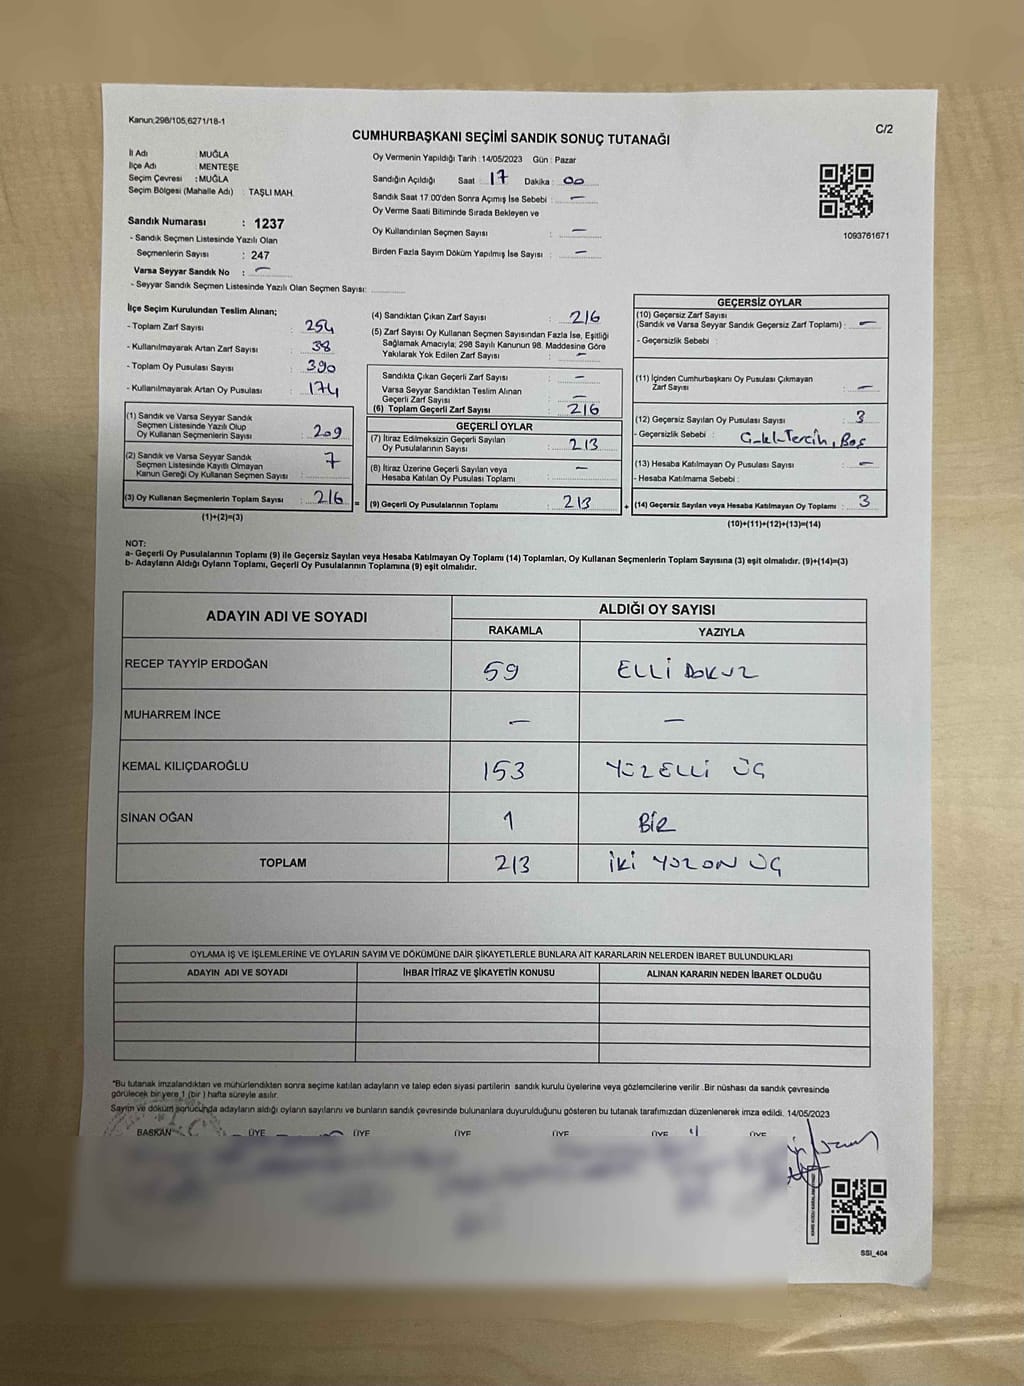 Kanun;298/105,6271/18-1
C/2
CUMHURBAŞKANI SEÇİMİ SANDIK SONUÇ TUTANAĞI
İl Adı : MUĞLA
İlçe Adı : MENTEŞE
Seçim Çevresi : MUĞLA
Seçim Bölgesi (Mahalle Adı) : TAŞLI MAH.
Sandık Numarası : 1237
- Sandık Seçmen Listesinde Yazılı Olan
Seçmenlerin Sayısı : 247
Varsa Seyyar Sandık No : —
- Seyyar Sandık Seçmen Listesinde Yazılı Olan Seçmen Sayısı:
Oy Vermenin Yapıldığı Tarih : 14/05/2023 Gün : Pazar
Sandığın Açıldığı Saat : 17 Dakika : 00
Sandık Saat 17:00'den Sonra Açımış İse Sebebi : —
Oy Verme Saati Bitiminde Sırada Bekleyen ve
Oy Kullandırılan Seçmen Sayısı : —
Birden Fazla Sayım Döküm Yapılmış İse Sayısı : —
1093761671
İlçe Seçim Kurulundan Teslim Alınan;
- Toplam Zarf Sayısı : 254
- Kullanılmayarak Artan Zarf Sayısı : 38
- Toplam Oy Pusulası Sayısı : 390
- Kullanılmayarak Artan Oy Pusulası : 174
(1) Sandık ve Varsa Seyyar Sandık
Seçmen Listesinde Yazılı Olup
Oy Kullanan Seçmenlerin Sayısı : 209
(2) Sandık ve Varsa Seyyar Sandık
Seçmen Listesinde Kayıtlı Olmayan
Kanun Gereği Oy Kullanan Seçmen Sayısı : 7
(3) Oy Kullanan Seçmenlerin Toplam Sayısı : 216
(1)+(2)=(3)
(4) Sandıktan Çıkan Zarf Sayısı : 216
(5) Zarf Sayısı Oy Kullanan Seçmen Sayısından Fazla İse, Eşitliği
Sağlamak Amacıyla; 298 Sayılı Kanunun 98. Maddesine Göre
Yakılarak Yok Edilen Zarf Sayısı : —
Sandıkta Çıkan Geçerli Zarf Sayısı : —
Varsa Seyyar Sandıktan Teslim Alınan
Geçerli Zarf Sayısı : —
(6) Toplam Geçerli Zarf Sayısı : 216
GEÇERLİ OYLAR
(7) İtiraz Edilmeksizin Geçerli Sayılan
Oy Pusulalarının Sayısı : 213
(8) İtiraz Üzerine Geçerli Sayılan veya
Hesaba Katılan Oy Pusulası Toplamı : —
= (9) Geçerli Oy Pusulalarının Toplamı : 213
GEÇERSİZ OYLAR
(10) Geçersiz Zarf Sayısı
(Sandık ve Varsa Seyyar Sandık Geçersiz Zarf Toplamı) : —
- Geçersizlik Sebebi :
(11) İçinden Cumhurbaşkanı Oy Pusulası Çıkmayan
Zarf Sayısı : —
(12) Geçersiz Sayılan Oy Pusulası Sayısı : 3
- Geçersizlik Sebebi : Tercih, Boş
(13) Hesaba Katılmayan Oy Pusulası Sayısı : —
- Hesaba Katılmama Sebebi :
+ (14) Geçersiz Sayılan veya Hesaba Katılmayan Oy Toplamı : 3
(10)+(11)+(12)+(13)=(14)
NOT:
a- Geçerli Oy Pusulalarının Toplamı (9) ile Geçersiz Sayılan veya Hesaba Katılmayan Oy Toplamı (14) Toplamları, Oy Kullanan Seçmenlerin Toplam Sayısına (3) eşit olmalıdır. (9)+(14)=(3)
b- Adayların Aldığı Oyların Toplamı, Geçerli Oy Pusulalarının Toplamına (9) eşit olmalıdır.
ADAYIN ADI VE SOYADI ALDIĞI OY SAYISI
RAKAMLA YAZIYLA
RECEP TAYYİP ERDOĞAN 59 ELLİ DOKUZ
MUHARREM İNCE — —
KEMAL KILIÇDAROĞLU 153 YÜZELLİ ÜÇ
SİNAN OĞAN 1 BİR
TOPLAM 213 İKİ YÜZON ÜÇ
OYLAMA İŞ VE İŞLEMLERİNE VE OYLARIN SAYIM VE DÖKÜMÜNE DAİR ŞİKAYETLERLE BUNLARA AİT KARARLARIN NELERDEN İBARET BULUNDUKLARI
ADAYIN ADI VE SOYADI İHBAR İTİRAZ VE ŞİKAYETİN KONUSU ALINAN KARARIN NEDEN İBARET OLDUĞU
"Bu tutanak imzalandıktan ve mühürlendikten sonra seçime katılan adayların ve talep eden siyasi partilerin sandık kurulu üyelerine veya gözlemcilerine verilir .Bir nüshası da sandık çevresinde
görülecek bir yere 1 (bir ) hafta süreyle asılır.
Sayım ve döküm sonucunda adayların aldığı oyların sayılarını ve bunların sandık çevresinde bulunanlara duyurulduğunu gösteren bu tutanak tarafımızdan düzenlenerek imza edildi. 14/05/2023
BAŞKAN ÜYE ÜYE ÜYE ÜYE ÜYE ÜYE
SSI_404